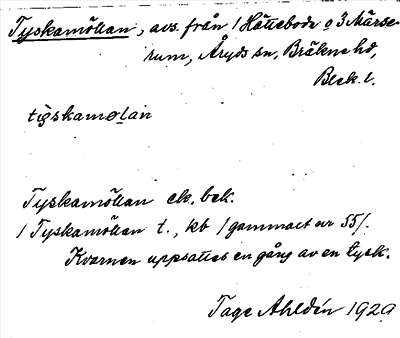 Tyskamöllan, avs. från 1 Hättebode o 3 Märse-
rum, Åryds sn, Bräkne hd,
Blek. l.
tyskamølan
Tyskamöllan ek. bek.
1 Tyskamöllan t., kb 1 gammalt nr 55/.
Kvarnen uppsattes en gång av en tysk.
Tage Ahldén 1929